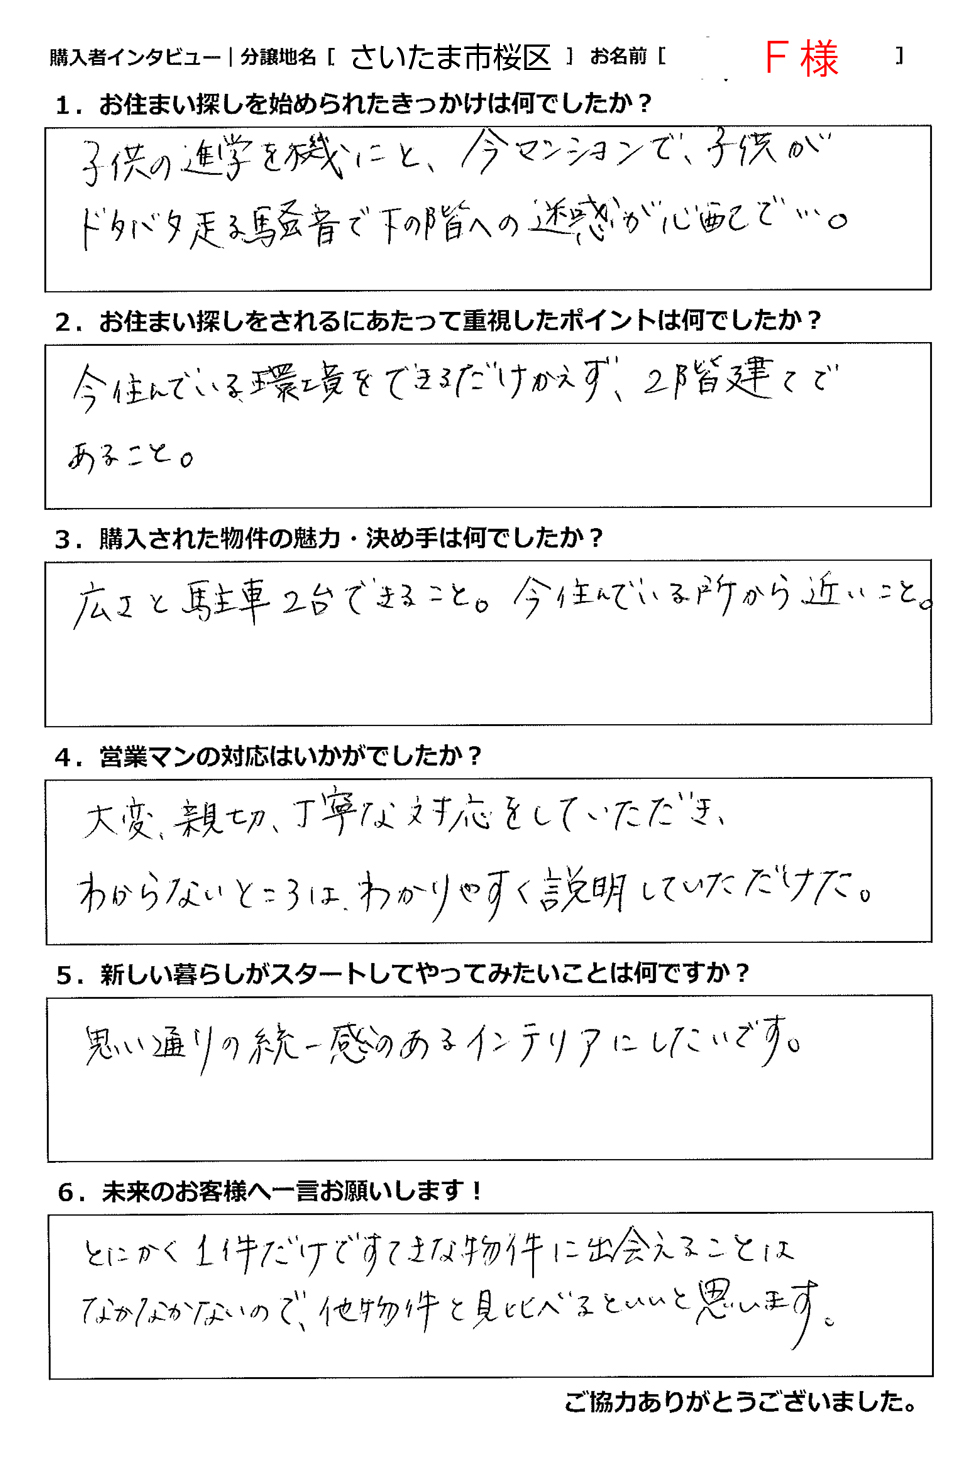 購入者インタビュー｜分譲地名［ さいたま市桜区 ］ お名前［ F様 ］
１．お住まい探しを始められたきっかけは何でしたか？
子供の進学を機にと、今マンションで、子供が
ドタバタ走る騒音で下の階への迷惑が心配で…。
２．お住まい探しをされるにあたって重視したポイントは何でしたか？
今住んでいる環境をできるだけかえず、2階建てで
あること。
３．購入された物件の魅力・決め手は何でしたか？
広さと駐車2台できること。今住んでいる所から近いこと。
４．営業マンの対応はいかがでしたか？
大変、親切、丁寧な対応をしていただき、
わからないところは、わかりやすく説明していただけた。
５．新しい暮らしがスタートしてやってみたいことは何ですか？
思い通りの統一感のあるインテリアにしたいです。
６．未来のお客様へ一言お願いします！
とにかく1件だけですてきな物件に出会えることは
なかなかないので、他物件と見比べるといいと思います。
ご協力ありがとうございました。